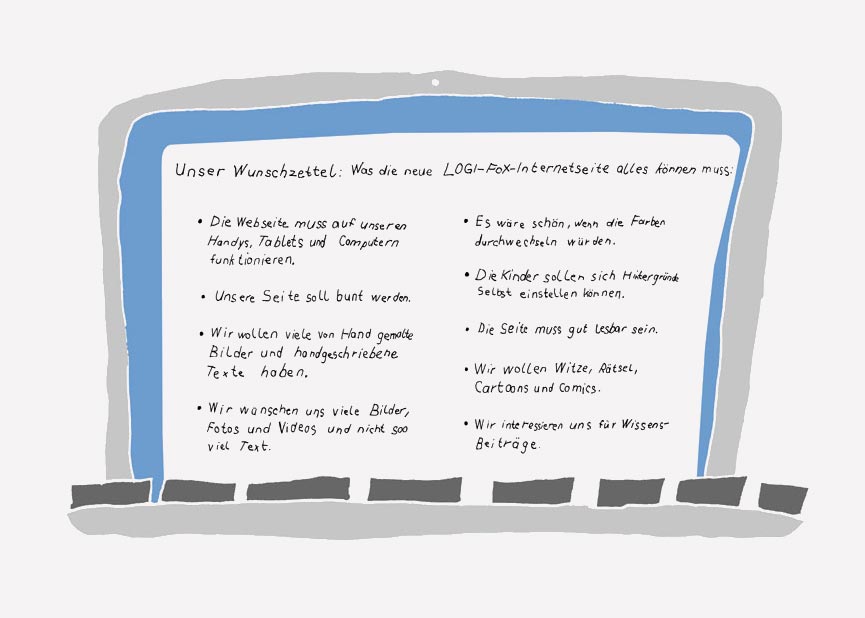 Unser Wunschzettel: Was die neue LOGI-FOX-Internetseite alles können muss:
• Die Webseite muss auf unseren
Handys, Tablets und Computern
funktionieren.
• Unsere Seite soll bunt werden.
• Wir wollen viele von Hand gemalte
Bilder und handgeschriebene
Texte haben.
• Wir wünschen uns viele Bilder,
Fotos und Videos und nicht soo
viel Text.
• Es wäre schön, wenn die Farben
durchwechseln würden.
• Die Kinder sollen sich Hintergründe
selbst einstellen können.
• Die Seite muss gut lesbar sein.
• Wir wollen Witze, Rätsel,
Cartoons und Comics.
• Wir interessieren uns für Wissens-
Beiträge.